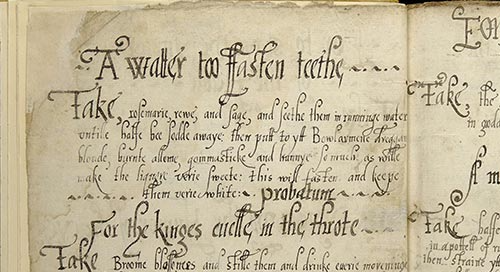 A watter too ffasten teethe,
Take, rosemarie, rewe, and sage, and seethe them in runninge water
untille halfe bee sodde awaye: then putt to yt Bowlarmente dragons
bloude, burnte allome, gommasticke and hunnye so much, as wille
make the liquor verie sweete: this will fasten, and keepe
them verie white: probatum
For the kinges evelle, in the throte
Take Broome blossoms and stille them and drinke everie morninge
For
Take, the
in goda
A m
Take halfe
in a pottell of r
then straine y